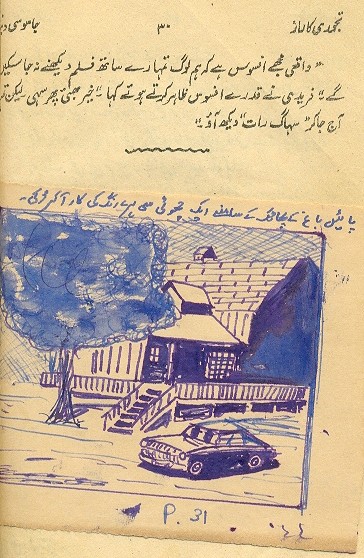 تجوری کا راز ۳۰ جاسوسی
"واقعی مجھے افسوس ہے کہ ہم لوگ تمہارے ساتھ فلم دیکھنے نہ جا سکیں
گے" فریدی نے قدرے افسوس ظاہر کرتے ہوئے کہا۔ "خیر بھئی پھر سہی لیکن
آج جا کر "سہاگ رات" دیکھ آؤ۔"
پائیں باغ کے پھاٹک کے سامنے ایک چھوٹی سی رنگ کی کار آ کر رکی۔
P. 31